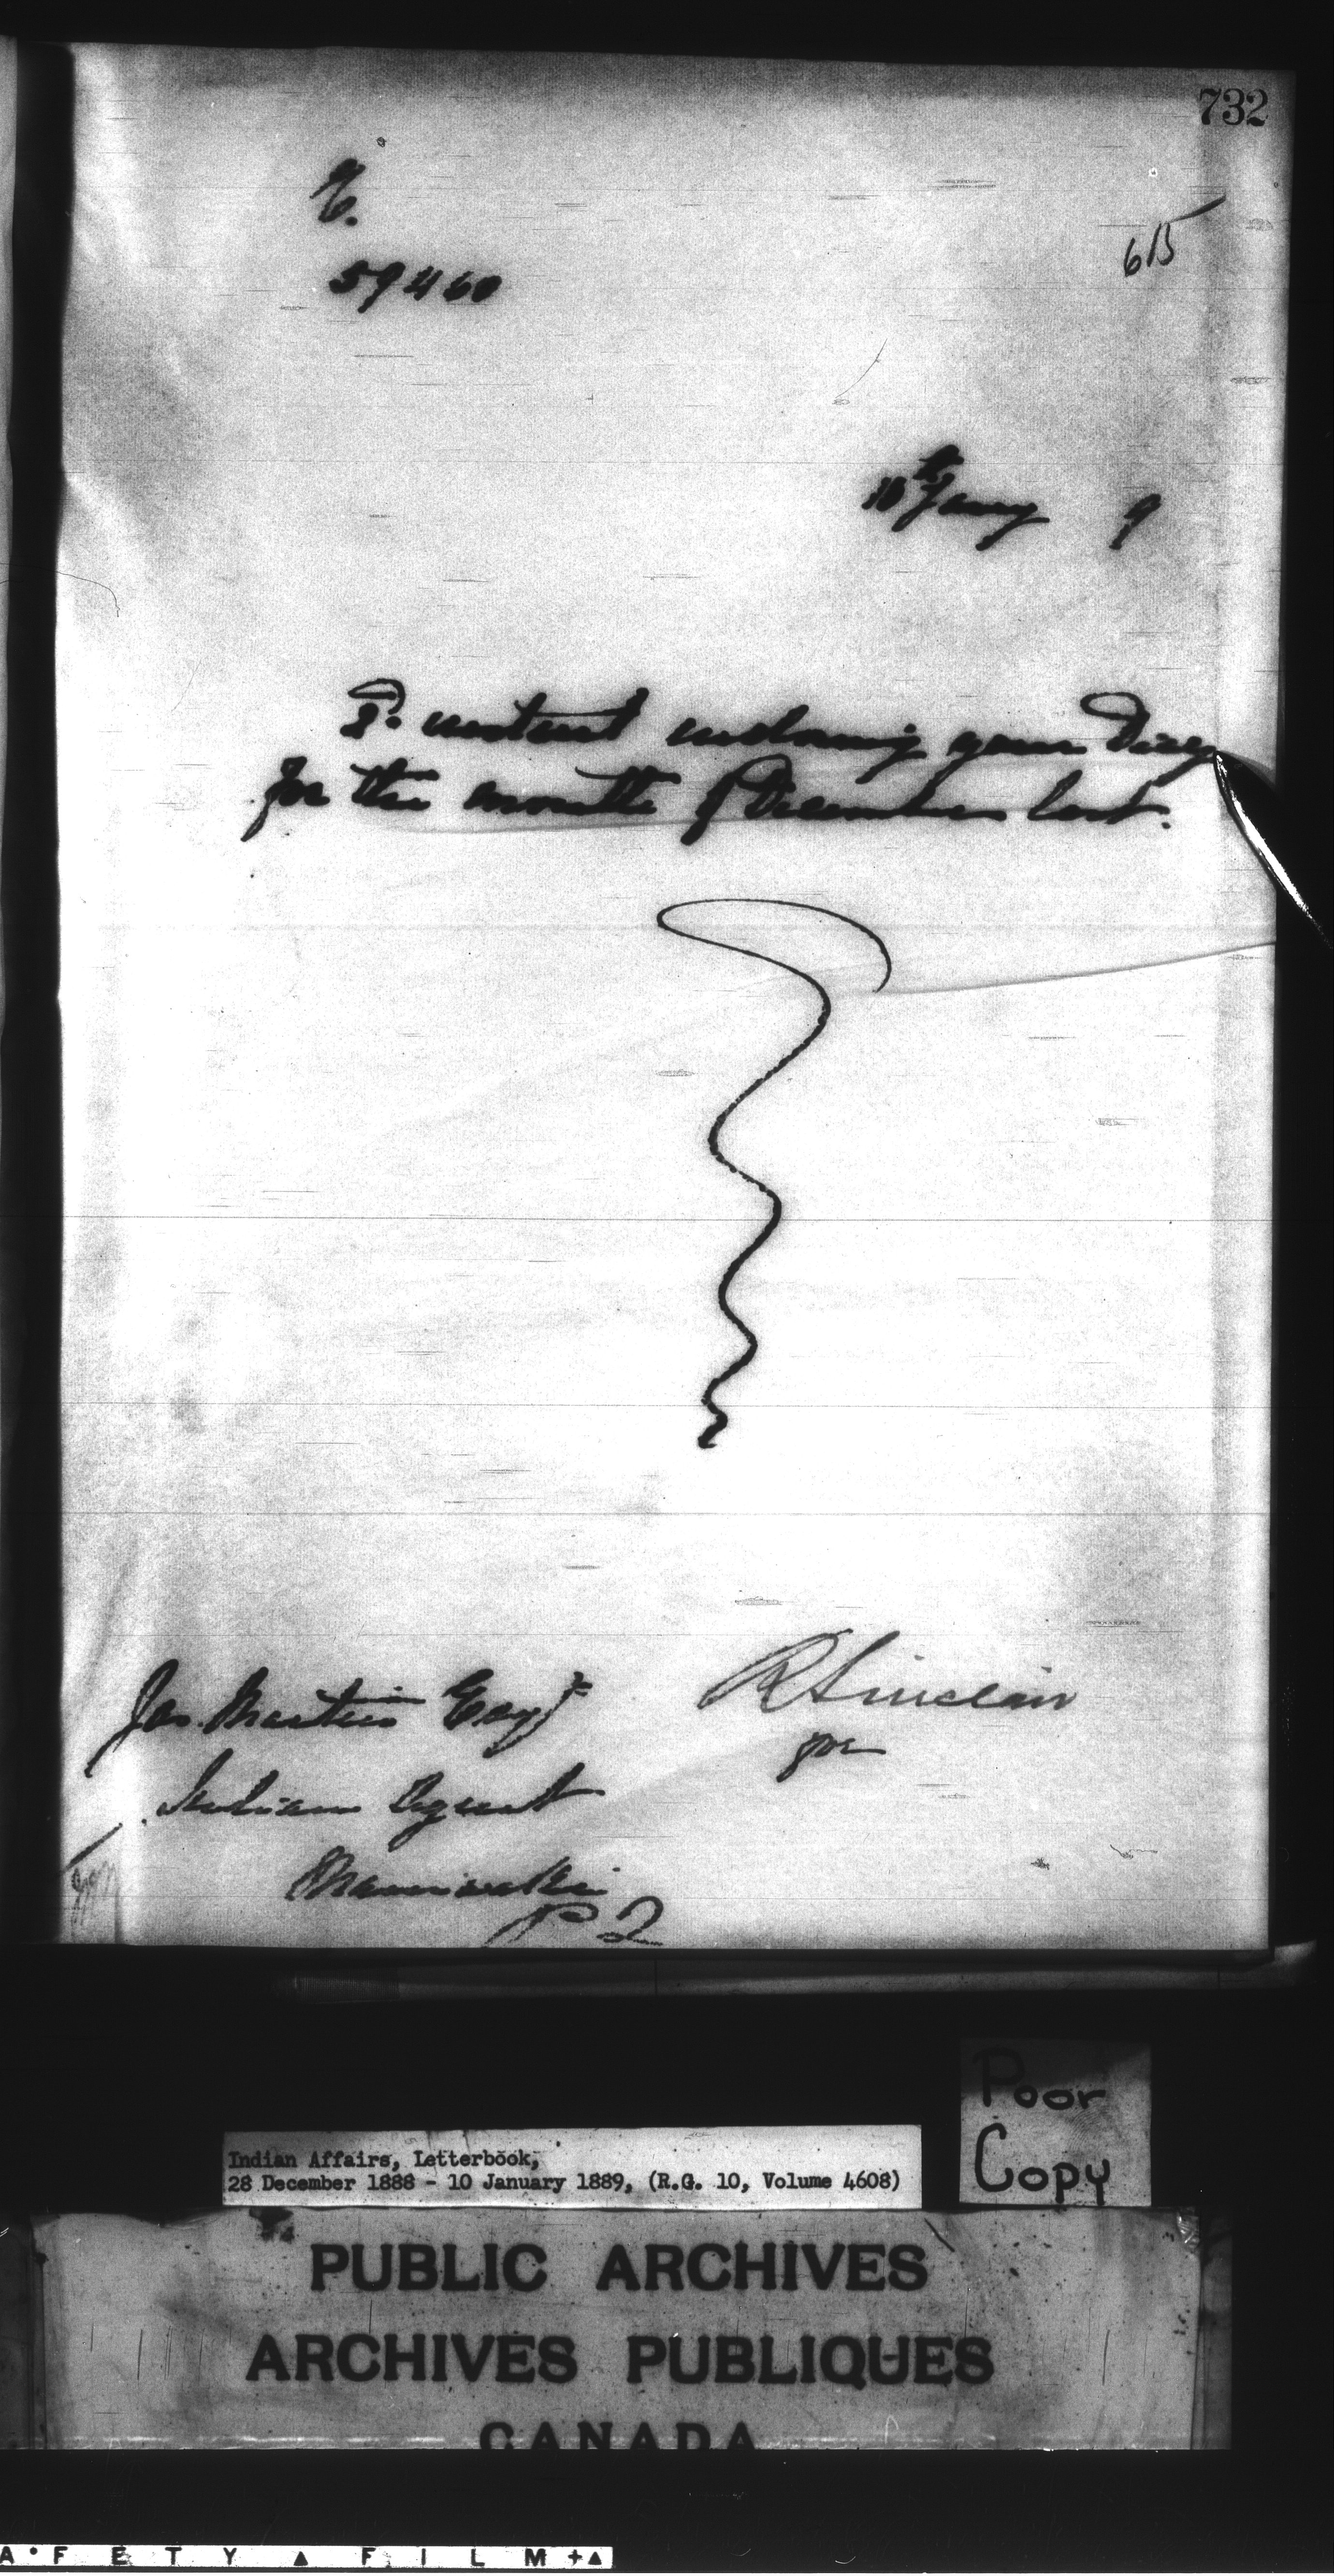 732
615
59460
10th Jany 9
instant enclosing your Diary
for the month of December last.
Jas. Martin Esqr
R Sinclair
for
Indian Agent
Maniwaki
P 2
Poor
Copy
Indian Affairs, Letterbook,
28 December 1888 - 10 January 1889, (R.G. 10, Volume 4608)
PUBLIC ARCHIVES
ARCHIVES PUBLIQUES
CANADA
A•FETY▲FILM+▲